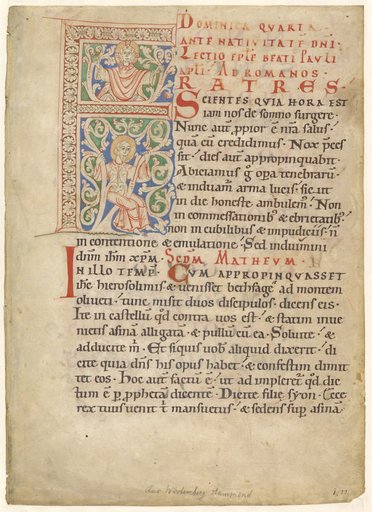 DOMINICA QUARTA
ANTE NATIVITATE DNI.
LECTIO EPLE BEATI PAULI
APLI. AD ROMANOS.
FRATRES
SCIENTES QUIA HORA EST
iam nos de somno surgere.
Nunc aut ppior ē nr̄a salus.
quā cū credidimus. Nox p̄ces
sit. dies aut appropinquabit.
Abiciamus g̊ opa tenebrarū.
& induam̄ arma lucis. sic ut
in die honeste ambulem̄. Non
in commessationib; & ebrietatib;
non in cubilibus & impudiciis. ñ
in contentione & emulatione. Sed induimini
dnm ihm xpm. Scdm Matheum.
In illo temp. Cum appropinquasset
ihc hierosolimis & venisset bethfage ad montem
oliveti. tunc misit duos discipulos. dicens eis.
Ite in castellū qd contra vos est. & statim inve
nietis asinā alligatā. & pullū cū ea. Solvite. &
adducite m̄. Et siquis vob̄ aliquid dixerit. di
cite quia dn̄s his opus habet. & confestim dimit
tet eos. Hoc aut̄ factū ē. ut adimpleret̄ qd dic
tum ē p pphetā dicentē. Dicite filie syon. Ecce
rex tuus venit t̄ mansuetus. & sedens sup asinā.